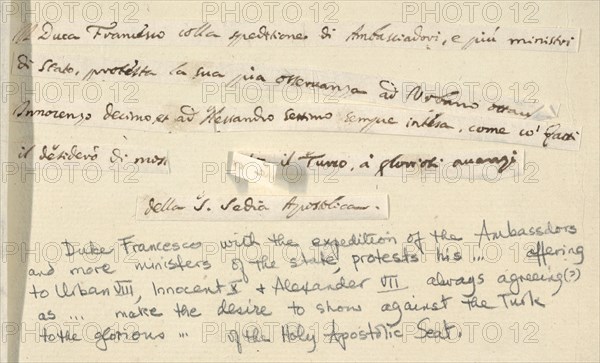 Il Duca Francesco colla speditione di Ambasciadori, e più ministri
di Stato, protesta la sua pia osservanza ad Urbano ottavo
Innocenzo decimo, et ad Alessandro settimo sempre intesa, come co' fatti
il desiderò di mos il Turco, à gloriosi avanzi
della S. Sedia Apostolica.
Duke Francesco with the expedition of the Ambassdors
and more ministers of the state, protests his ... offering
to Urban VIII, Innocent X + Alexander VII always agreeing (?)
as ... make the desire to show against the Turk
to the glorious ... of the Holy Apostolic Seat.